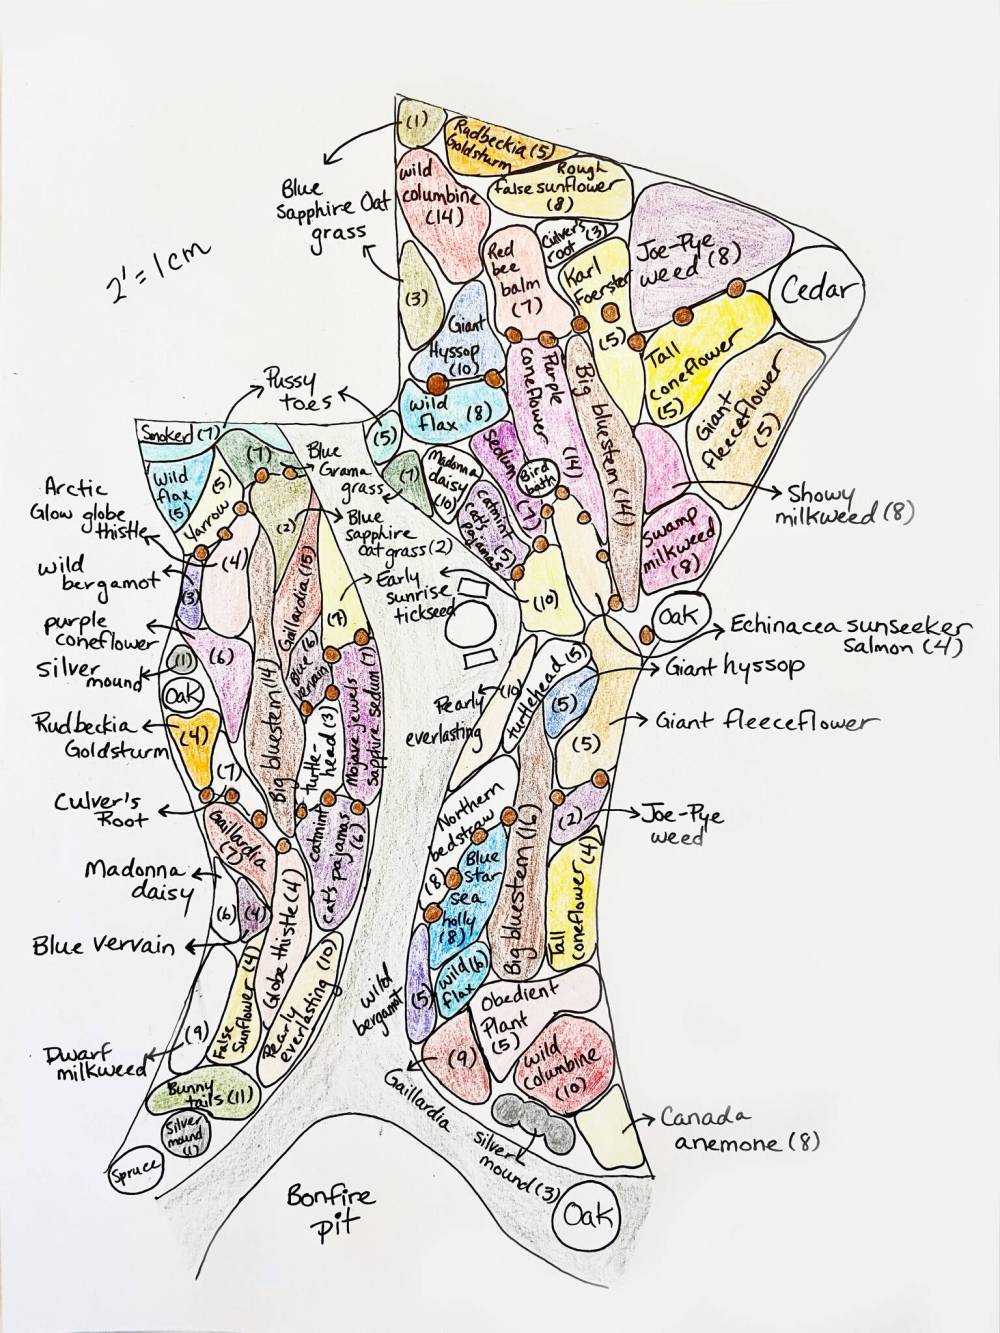 (1)
Rudbeckia (5)
Goldsturm
Rough
false sunflower
(8)
wild
columbine
(14)
Blue
Sapphire Oat
grass
2' = 1cm
Culver's
root (3)
Red
bee
balm
(7)
Karl
Foerster
(5)
Joe-Pye
weed (8)
Cedar
(3)
Giant
Hyssop
(10)
Purple
coneflower
(14)
Big bluestem (14)
Tall
coneflower
(5)
Giant
fleeceflower
(5)
Pussy
toes
wild
flax (8)
(5)
Smoker (7)
(7)
Blue
Grama
grass
(7)
Madonna
daisy
(10)
sedum
(7)
Bird
bath
catmint
cat's
pajamas
(5)
Showy
milkweed (8)
Swamp
milkweed
(8)
Wild
flax
(5)
(5)
Yarrow
Arctic
Glow globe
thistle
(2)
Blue
sapphire
oatgrass (2)
wild
bergamot
(4)
(3)
Gallardia (15)
Early
sunrise
tickseed
(7)
(10)
Oak
Echinacea sunseeker
Salmon (4)
purple
coneflower
(6)
silver
mound
(1)
Oak
Blue (6)
vervain
Mojave jewels
sapphire sedum (7)
Giant hyssop
turtlehead (5)
(5)
Pearly
everlasting
(10)
Giant fleeceflower
(5)
Rudbeckia
Goldsturm
(4)
Big bluestem (14)
turtle-
head (3)
(7)
Culver's
Root
catmint
cat's pajamas
(6)
Northern
bedstraw
(8)
Big bluestem (16)
(2)
Joe-Pye
weed
Gaillardia
(7)
Madonna
daisy
(6)
(4)
Blue vervain
Globe thistle (4)
Blue
star
sea
holly
(8)
Tall
coneflower (4)
Pearly
everlasting (10)
False
Sunflower (4)
wild
bergamot
(5)
wild (6)
flax
Obedient
Plant
(5)
(9)
Dwarf
milkweed
(9)
Gaillardia
wild
columbine
(10)
Bunny
tails (11)
Silver
mound
(1)
Spruce
Canada
anemone (8)
silver
mound (3)
Bonfire
pit
Oak